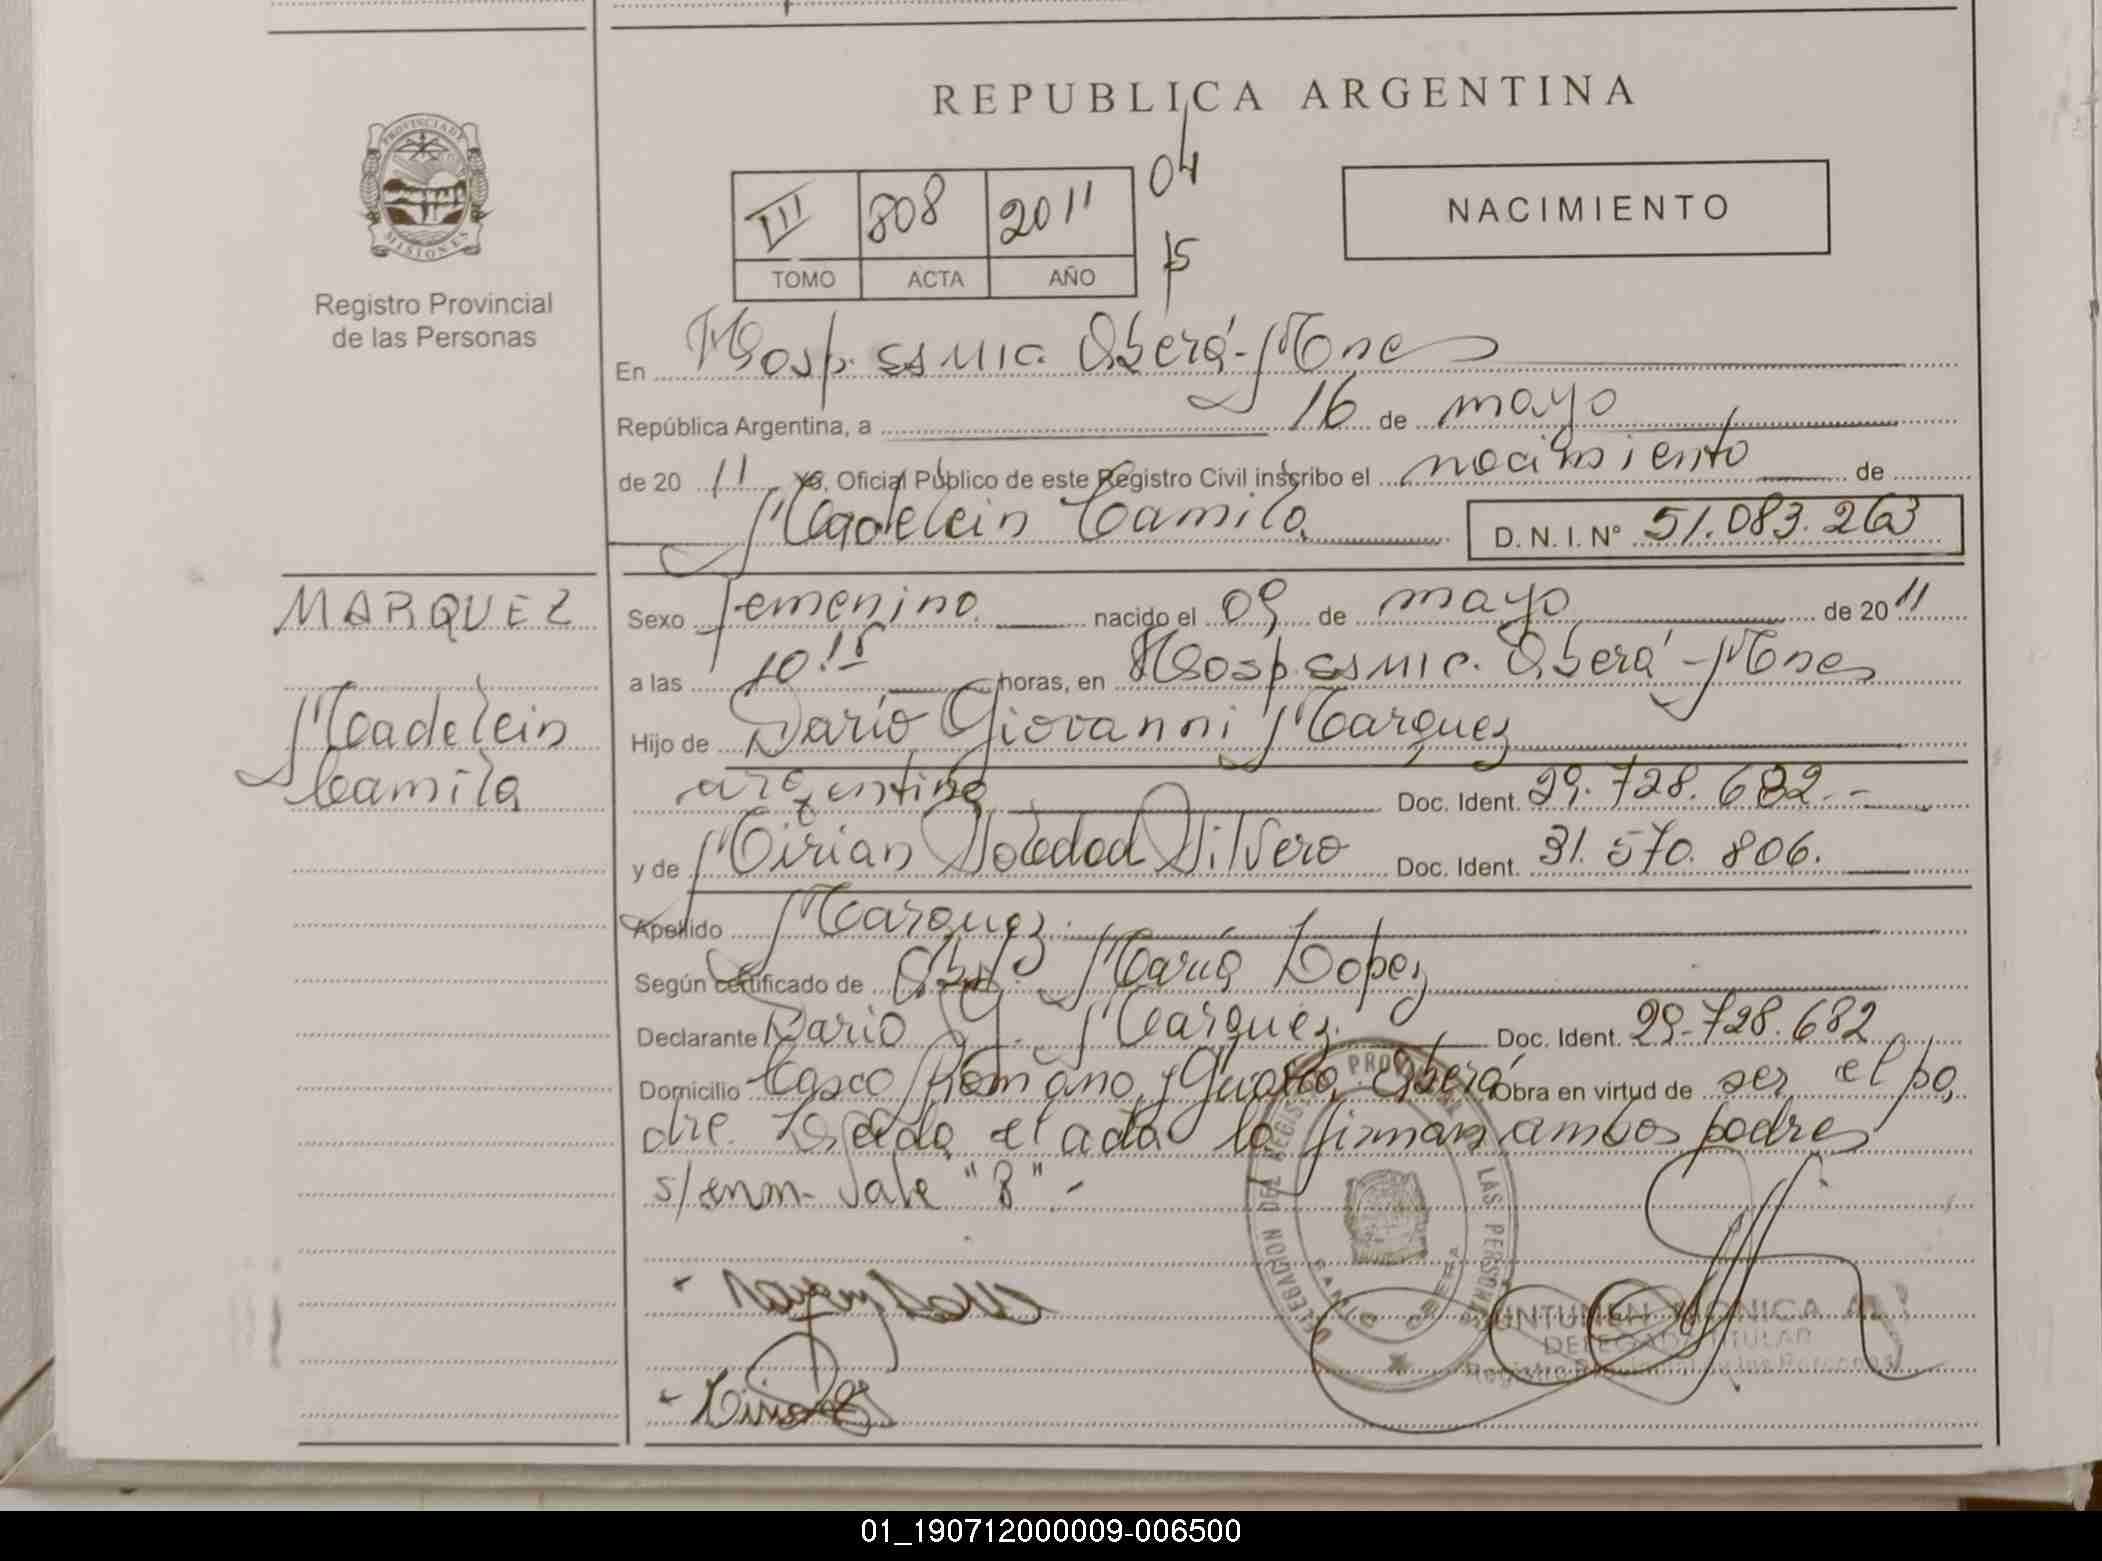 REPUBLICA ARGENTINA
PROVINCIA DE
MISIONES
Registro Provincial
de las Personas
III 808 2011 04
TOMO ACTA AÑO 75
NACIMIENTO
En Hosp. SSMIC. Oberá - Mnes
República Argentina, a 16 de mayo
de 20 11 Yo, Oficial Público de este Registro Civil inscribo el nacimiento de
Madelein Camila D. N. I. N° 51.083.263
MARQUEZ
Madelein
Camila
Sexo femenino nacido el 09 de mayo de 20 11
a las 10.15 horas, en Hosp. SSMIC. Oberá - Mnes
Hijo de Darío Giovanni Marquez
argentino Doc. Ident. 29.728.682.-
y de Mirian Soledad Silvero Doc. Ident. 31.570.806.
Apellido Marquez.
Según certificado de Obst. María Lopez
Declarante Dario G. Marquez. Doc. Ident. 29.728.682
Domicilio Casco Romano, y Oberá Obra en virtud de ser el pa
dre. Leída el acta la firman ambos padres
s/enm- Vale "8" -
DELEGACION DEL REGISTRO PROVINCIAL LAS PERSONAS
MONICA
DELEGADA TITULAR
Registro Provincial de las Personas
01_190712000009-006500